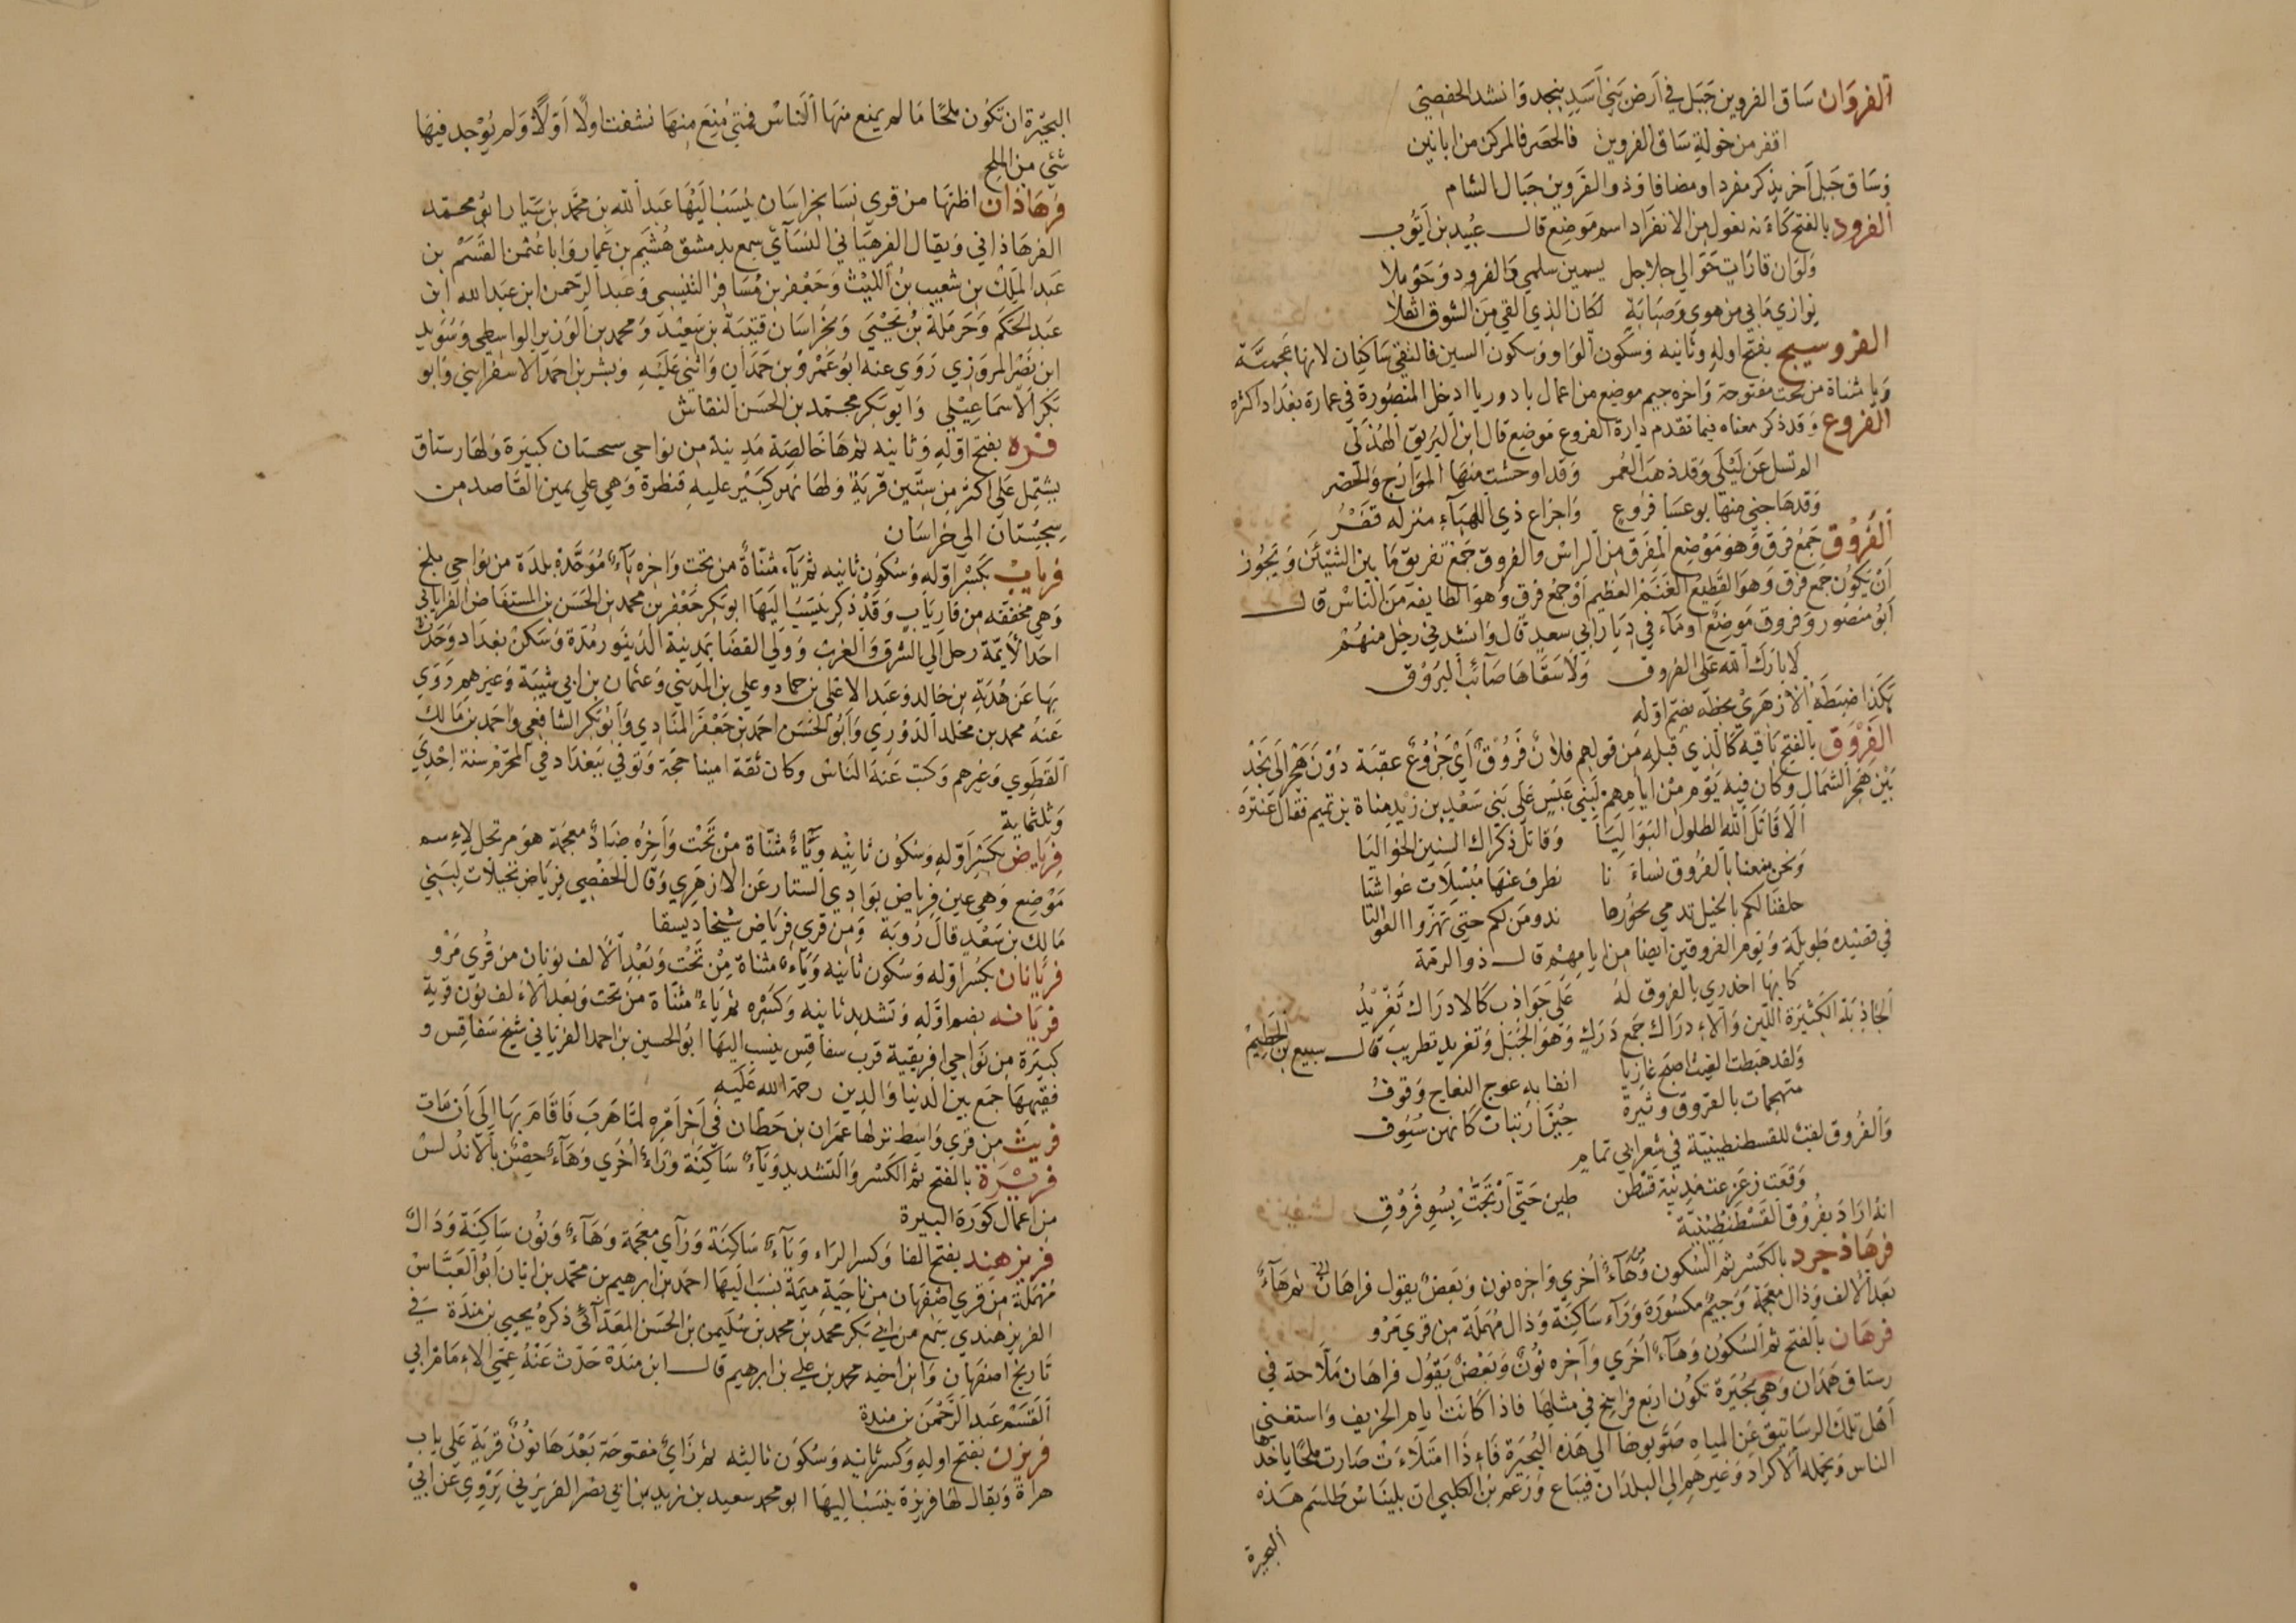 الفروان ساق الفروين جبل في أرض بني أسد بنجد وانشد الحفصي
اقفر من خولة ساق الفروين فالحضر فالمركن من ابانين
وساق جبل آخر يذكر مفردا ومضافا وذو القروين جبال الشام
الفرود بالفتح كأنه فعول من الانفراد اسم موضع قال عبيد بن أيوب
ولو ان قارات حوالي جلاجل يسمين سلمي والفرود وحوملا
يوازي ما بي من هوي وصبابة لكان الذي القي من الشوق اثقلا
الفروسيج بفتح اوله وثانيه وسكون الواو وسكون السين فالتقي ساكنان لانها عجمية
ويا مثناة من تحت مفتوحة واخره جيم موضع من اعمال بادوريا ادخل المنصورة في عمارة بغداد اكثره
الفروع وقد ذكر معناه فيما تقدم دارة الفروع موضع قال ابن البريق الهذلي
الم تسل عن ليلي وقد ذهب العمر وقد اوحشت منها الموازج والحضر
وقد هاجني منها بوعسا فروع واجزاع ذي اللهباء منزله قفر
الفروق جمع فرق وهو موضع المفرق من الراس والفروق جمع تفريق ما بين الشيئين ويجوز
أن يكون جمع فرق وهو القطيع الغنم العظيم أو جمع فرق وهو الطايفة من الناس قال
أبو منصور وفروق موضع او ماء في ديار ابي سعد قال وانشدني رجل منهم
لا بارك الله علي الفروق ولا سقاها صائب البروق
هكذا ضبطه الازهري بخطه بضم اوله
الفروق بالفتح باقيه كالذي قبله من قولهم فلان فروق أي جزوع عقبة دون هجر الي نجد
بين هجر الشمال وكان فيه يوم من ايامهم لبني عبس علي بني سعد بن زيد مناة بن تميم فقال عنترة
ألا قاتل الله الطلول البواليا وقاتل ذكراك السنين الخواليا
ونحن منعنا بالفروق نساءنا نطرف عنها مسبلات غواشيا
حلفنا لكم بالخيل تدمي نحورها ندومن لكم حتي تهزوا العواليا
في قصيده طويلة ويوم الفروقين ايضا من ايامهم قال ذو الرمة
كانها اخدري بالفروق له علي جواذب كالادراك تغريد
الجاذبة الكثيرة اللبن والادراك جمع درك وهو الحبل وتغريد تطريب قال سبيع بن الخطيم
ولقد هبطت الغيث اصبح عازبا انفا به عوج النعاج وقوف
متهجمات بالفروق وثبرة
والفروق لقب للقسطنطينية في شعر ابي تمام
وقعت زعزعت مدينة قسطن طين حتي ارتجت بسو فروق
انه اراد بفروق القسطنطينية
فرهاذجرد بالكسر ثم السكون وهاء أخري واخره نون وبعض يقول فراهان ثم هاء
بعد الالف وذال معجمة وجيم مكسورة وراء ساكنة وذال مهملة من قري مرو
فرهان بالفتح ثم السكون وهاء أخري وآخره نون وبعض يقول فراهان ملاحة في
رستاق همذان وهي بحيرة تكون اربع فراسخ في مثلها فاذا كانت ايام الخريف واستغني
أهل تلك الرساتيق عن المياه صوبوها الي هذه البحيرة فاءذا امتلاءت صارت ملحا ياخذها
الناس ويحمله الاكراد وغيرهم الي البلدان فيباع وزعم بن الكلبي ان بليناس طلسم هذه
البحيرة
البحيرة ان تكون ملحا ما لم يمنع منها الناس فمتي منع منها نشفت اولا أولا ولم يوجد فيها
شئ من الملح
فرهاذان اظنها من قري نسا بخراسان ينسب اليها عبد الله بن محمد بن سيار ابو محمد
الفرهاذاني ويقال الفرهياني النسآئي سمع بدمشق هشيم بن عمار وابا عثمن القسم بن
عبد الملك بن شعيب بن الليث وجعفر بن مسافر التنيسي وعبد الرحمن ابن عبد الله ابن
عبد الحكم وحرملة بن يحيي وبخراسان قتيبة بن سعيد ومحمد بن الوزير الواسطي وسويد
ابن نصر المروزي روي عنه ابو عمرو بن حمدان واثني عليه وبشر بن احمد الاسفرايني وابو
بكر الاسماعيلي وابو بكر محمد بن الحسن النقاش
فره بفتح اوله وثانيه ثم هاخالصة مدينة من نواحي سجستان كبيرة ولها رستاق
يشتمل علي اكثر من ستين قرية ولها نهر كبير عليه قنطرة وهي علي يمين القاصد من
سجستان الي خراسان
فرياب بكسر اوله وسكون ثانيه ثم ياء مثناة من تحت واخره باء موحدة بلدة من نواحي بلخ
وهي مخففة من فارياب وقد ذكر ينسب اليها ابو بكر جعفر بن محمد بن الحسن بن المستفاض الفريابي
احد الأيمة رحل الي الشرق والغرب وولي القضا بمدينة الدينور مدة وسكن بغداد وحدث
بها عن هدبة بن خالد وعبد الاعلي بن حماد وعلي بن المديني وعثمان بن ابي شيبة وغيرهم روي
عنه محمد بن مخلد الدوري وابو الحسن احمد بن جعفر المنادي وابو بكر الشافعي واحمد بن مالك
القطوي وغيرهم وكتب عنه الناس وكان ثقة امينا حجة وتوفي ببغداد في المحرم سنة احدي
وثلثماية
فرياض بكسر اوله وسكون ثانيه وياء مثناة من تحت وآخره ضاد معجمة هو مرتجل لاءسم
موضع وهي عين فرياض بوادي الستار عن الازهري وقال الحفصي فرياض نخيلات لبني
مالك بن سعد قال روبة ومن قري فرياض شيخا ديسقا
فريانان بكسر اوله وسكون ثانيه وياء مثناة من تحت وبعد الالف نونان من قري مرو
فريانه بضم اوله وتشديد ثانيه وكسره ثم ياء مثناة من تحت وبعد الالف نون قرية
كبيرة من نواحي افريقية قرب سفاقس ينسب اليها ابو الحسين بن احمد الفرياني شيخ سفاقس و
فقيهها جمع بين الدنيا والدين رحمة الله عليه
فريث من قري واسط نزلها عمران بن حطان في آخر امره لما هرب فاقام بها الي أن مات
فريرة بالفتح ثم الكسر والتشديد وياء ساكنة وراء أخري وهاء حصن بالاندلس
من اعمال كورة البيرة
فريزهند بفتح الفا وكسر الراء وياء ساكنة وزاي معجمة وهاء ونون ساكنة ودال
مهملة من قري اصفهان من ناحية ميمة ينسب اليها احمد بن ابرهيم بن محمد بن ابان ابو العباس
الفريزهندي سمع من ابي بكر محمد بن محمد بن سليمن بن الحسن المعدآئي ذكره يحيي بن مندة في
تاريخ اصفهان وابن اخيه محمد بن علي بن ابرهيم قال ابن مندة حدث عنه عمي الاءمام ابي
القسم عبد الرحمن بن مندة
فريزن بفتح اوله وكسر ثانيه وسكون ثالثه ثم زاي مفتوحة بعدها نون قرية علي باب
هراة ويقال لها فريزة ينسب اليها ابو محمد سعيد بن زيد بن ابي نصر الفريزني يروي عن ابي